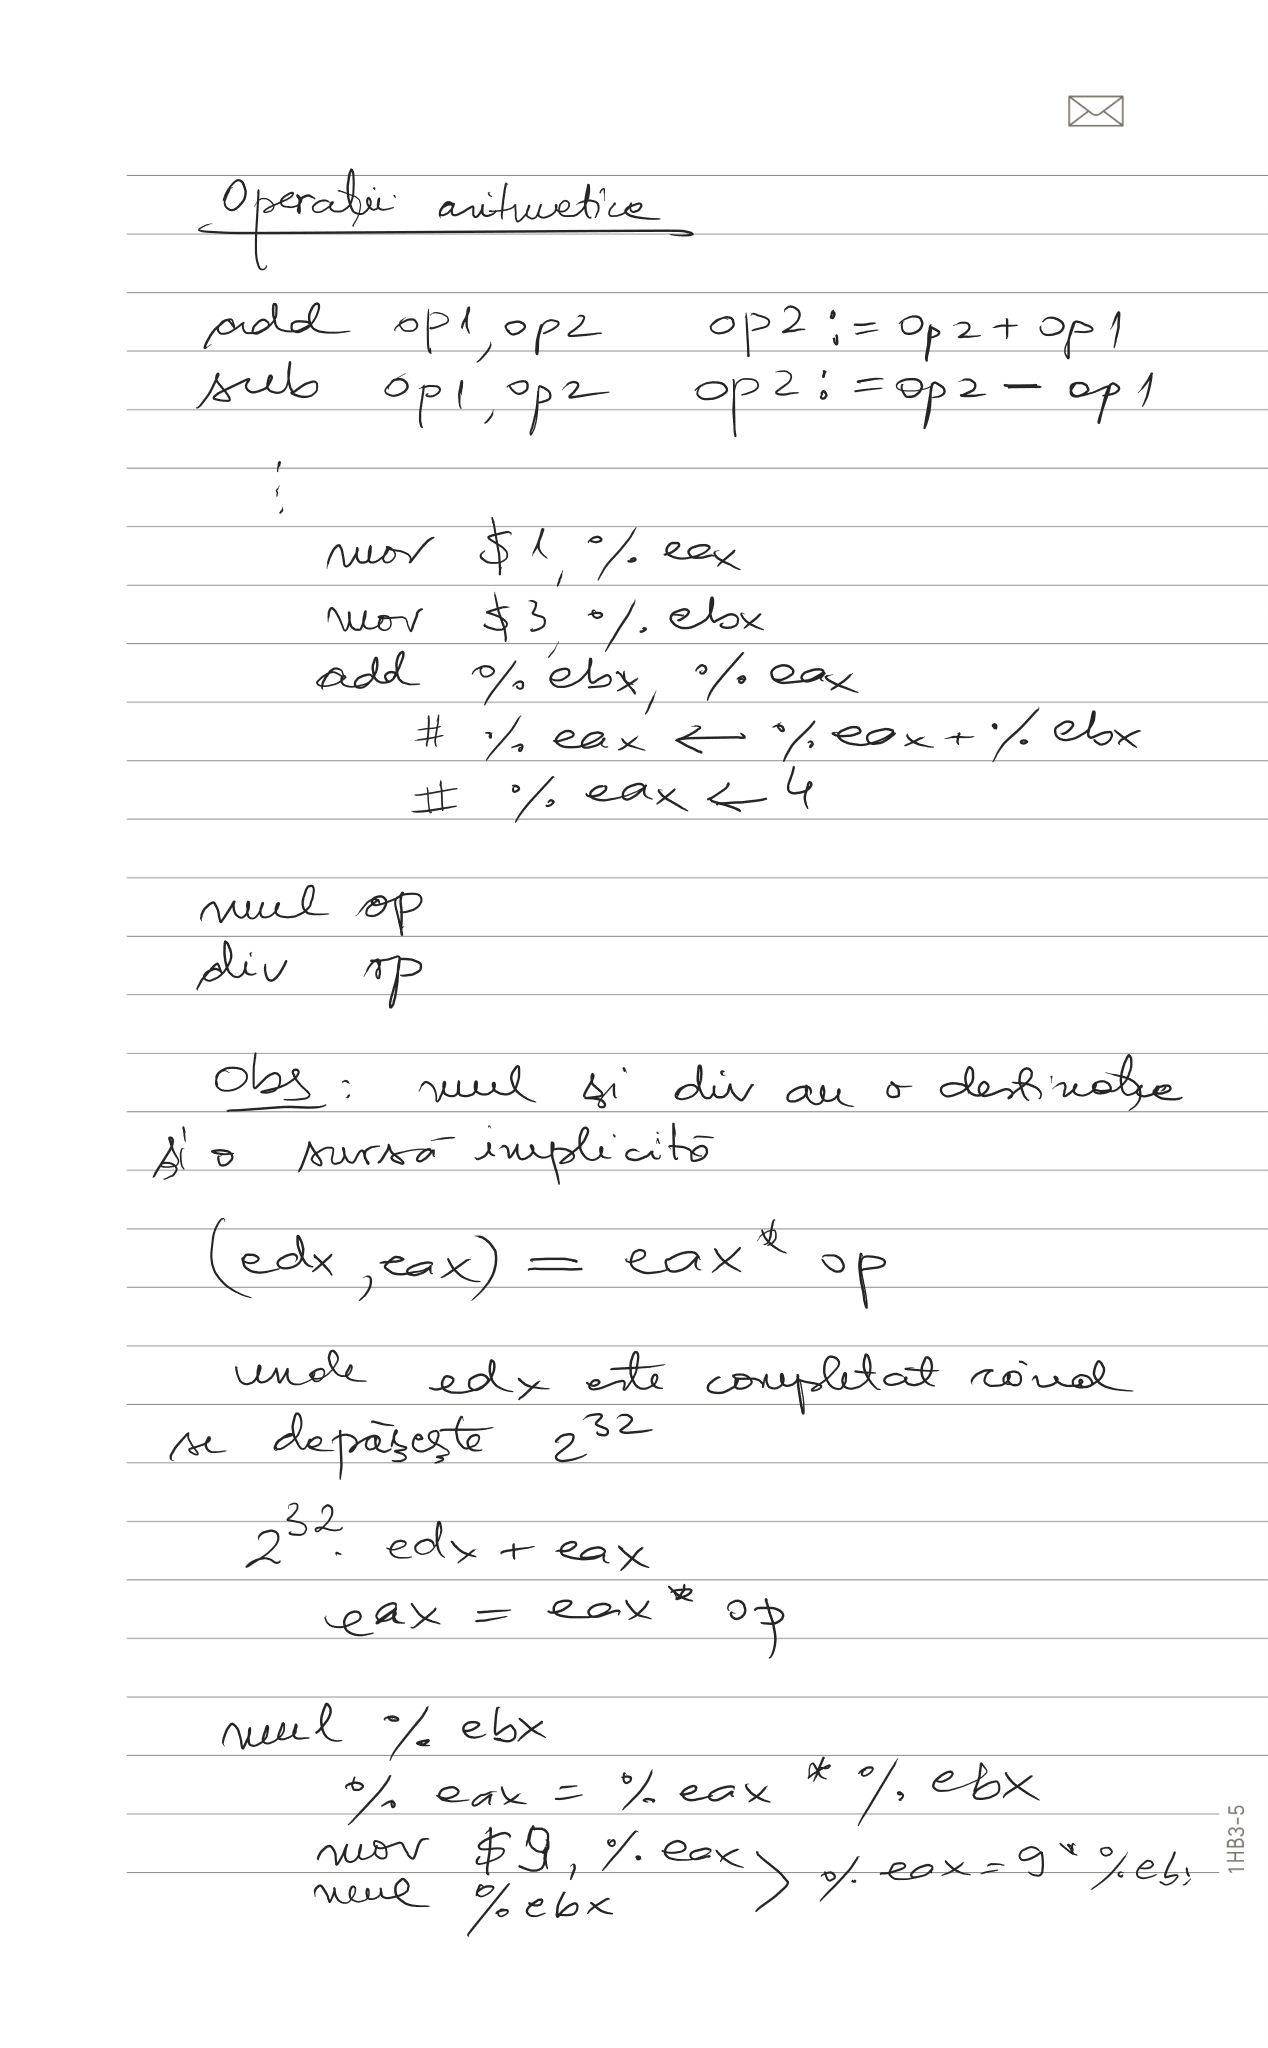 Operații aritmetice
add op1, op2 op2 := op2 + op1
sub op1, op2 op2 := op2 - op1
⋮
mov $1, %eax
mov $3, %ebx
add %ebx, %eax
# %eax ← %eax + %ebx
# %eax ← 4
mul op
div op
Obs: mul și div au o destinație
și o sursă implicită
(edx, eax) = eax * op
unde edx este completat când
se depășește 2^32
2^32 · edx + eax
eax = eax * op
mul %ebx
%eax = %eax * %ebx
mov $9, %eax
mul %ebx > %eax = 9 * %eb
1HB3-5